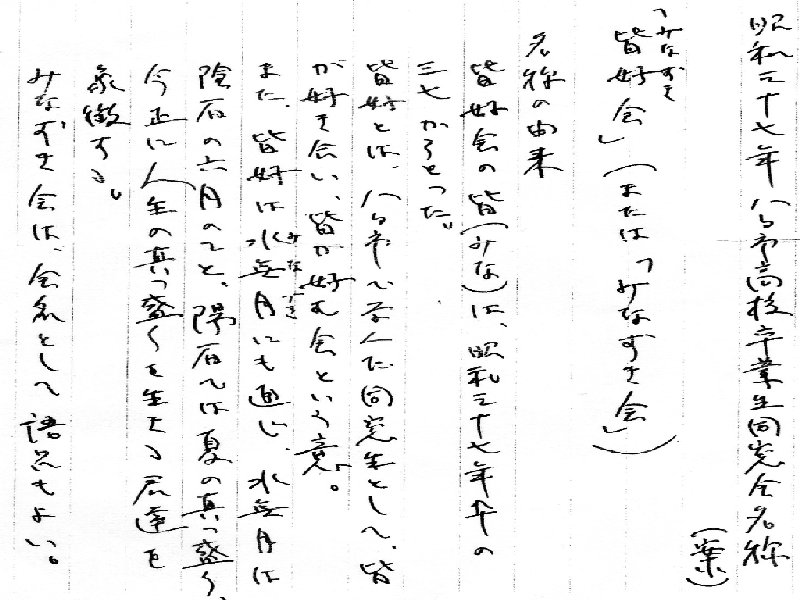 昭和三十七年八日市高校卒業生同窓会名称
(案)
「皆好会」(または「みなずき会」)
みなずき
名称の由来
皆好会の皆(みな)は、昭和三十七年卒の
三七からとった。
皆好とは、八日市で学んだ同窓生として、皆
が好き合い、皆が好む会という意。
また、皆好は水無月にも通じ、水無月は
みなずき
陰暦の六月のこと、陽暦では夏の真っ盛り、
今正に人生の真っ盛りを生きる君達を
象徴する。
みなずき会は、会名として語呂もよい。